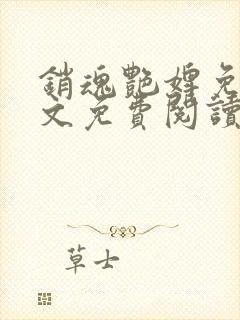 銷魂艷婢免
文免費閱讀
草士